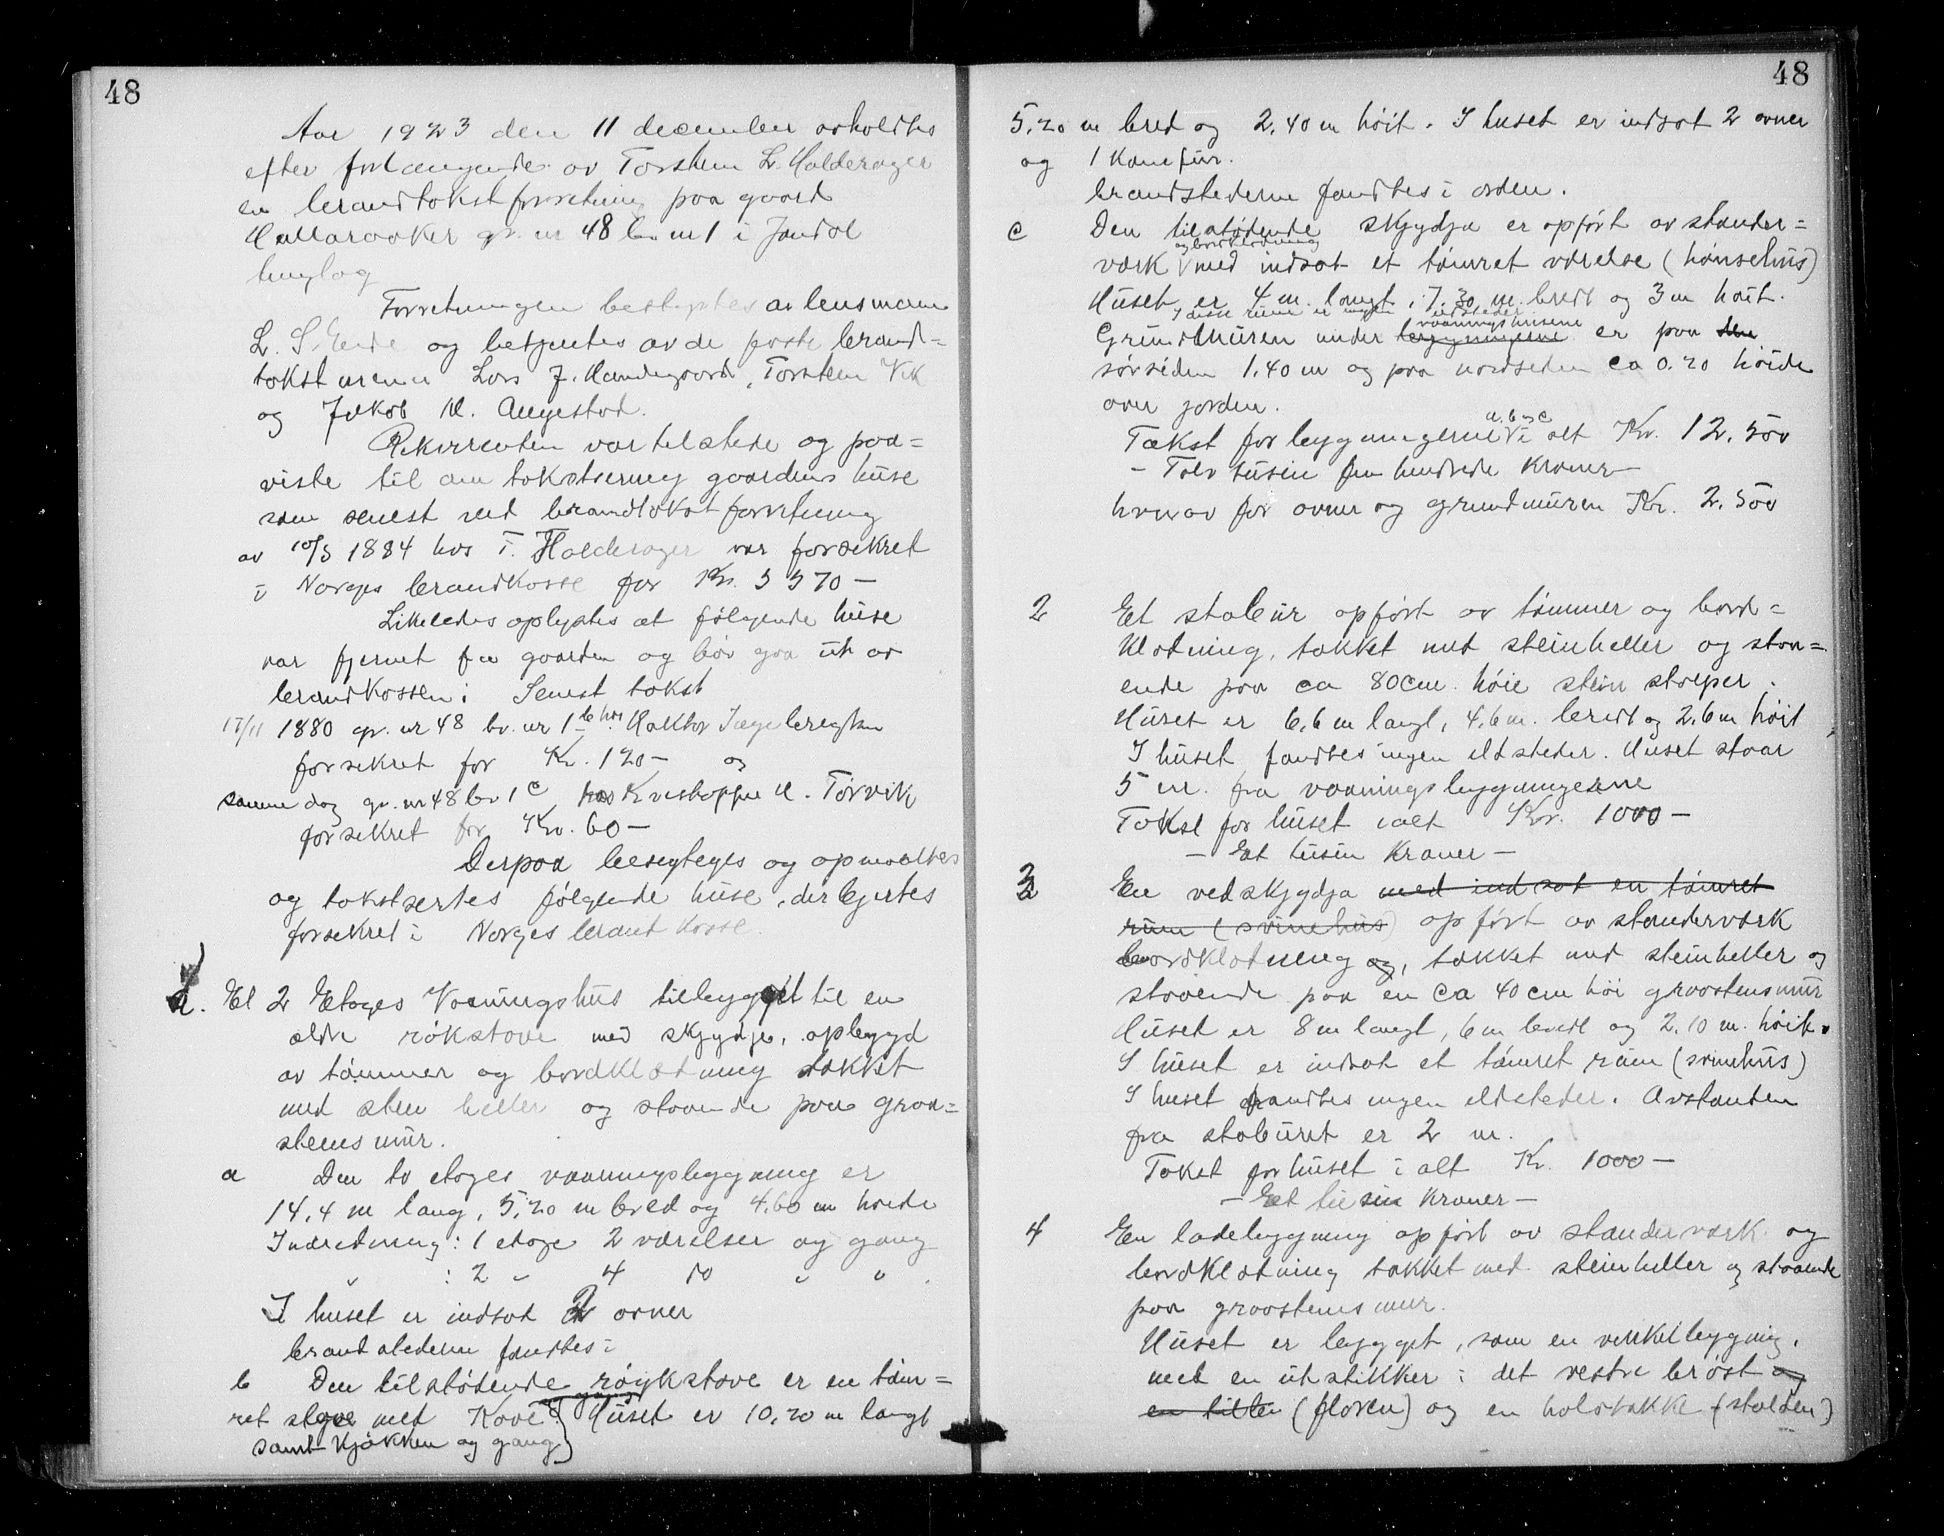 48
Aar 1923 den 11 december avholdtes
efter forlangende av Torstein L. Halderager
en brandtakstforretning paa gaard
Hallaraaker gr. nr 48 br. nr 1 i Jondal
tinglag
Forretningen bestyrtes av lensmann
L. S. Eide og betjentes av de faste brand=
takstmenn Lars J. Handegaard, Torstein Vik
og Jakob N. Augestad.
Rekvirenten var tilstede og paa=
viste til om taksering gaardens huse
som senest ved brandtakstforretning
av 10/5 1884 hos T. Halderager var forsekret
i Norges brandkasse for Kr. 3570 —
Likeledes oplystes at følgende huse
var fjernet fra gaarden og bør gaa ut av
brandkassen: Senest takst
17/11 1880 gr. nr 48 br. nr 1 b hos
forsikret for Kr. 120 — og
samme dag gr. nr 48 br 1 c hos
forsekret for Kr. 60 —
Derpaa besigtiges og opmaaltes
og takstsertes følgende huse, der bjertes
forsekret i Norges brankasse.
1. Et 2 Etages Vaaningshus tilbygget til en
ældre røkstove med skjydje, opbygd
av tømmer og bordklædning takket
med sten heller og staaende paa graa=
stens mur.
a Den to etages vaaningsbygning er
14,4 m lang, 5,20 m bred og 4,60 m høide
Indretning: 1 etage 2 værelser og gang
" : 2 " 4 do " "
I huset er indsat 2 ovner
brandstederne fandtes i
b Den tilstødende røykstove er en tøm=
ret stove med Kove Huset er 10,20 m langt
samt kjøkken og gang
48
5,20 m bred og 2,40 m høit. I huset er indsat 2 ovner
og 1 Komfur.
brandstederne fandtes i orden.
c Den tilstødende skjydja er opført av stander=
og bordklædning
værk med indsat et tømret værelse (hønsehus)
Huset er 4 m. langt, 7.30 m. bredt og 3 m høit.
I disse rum er ingen ildsteder
vaaningshusene
Grundmuren under bygningene er paa den
sørsiden 1.40 m og paa nordsiden ca 0.20 høide
over jorden.
a, b og c
Takst for bygningerne i alt Kr. 12.500
— Tolv tusin fem hundrede kroner —
hvorav for ovner og grundmuren Kr. 2.500
2 Et stabur opført av tømmer og bord=
klædning, takket med steinheller og staa=
ende paa ca 80 cm. høie stein stolper.
Huset er 6,6 m langt, 4,6 m. bredt og 2,6 m høit
I huset fandtes ingen ildsteder. Huset staar
5 m. fra vaaningsbygningerne
Takst for huset ialt Kr. 1000 —
— Et tusin Kroner —
3 En vedskjydja med indsat en tømret
rum (svinehus) opført av standerværk
bordklædning og, takket med steinheller og
staaende paa en ca 40 cm høi graastensmur
Huset er 8 m langt, 6 m bredt og 2,10 m. høit.
I huset er indsat et tømret rum (svinehus)
I huset fandtes ingen ildsteder. Avstanden
fra staburet er 2 m.
Takst for huset i alt Kr. 1000 —
— Et tusin kroner —
4 En ladebygning opført av standerværk og
bordklædning takket med steinheller og staaende
paa graastens mur.
Huset er bygget, som en vinkelbygning,
med en utstikker i det vestre brøst og
en litten (floren) og en halvtakke (stalden)